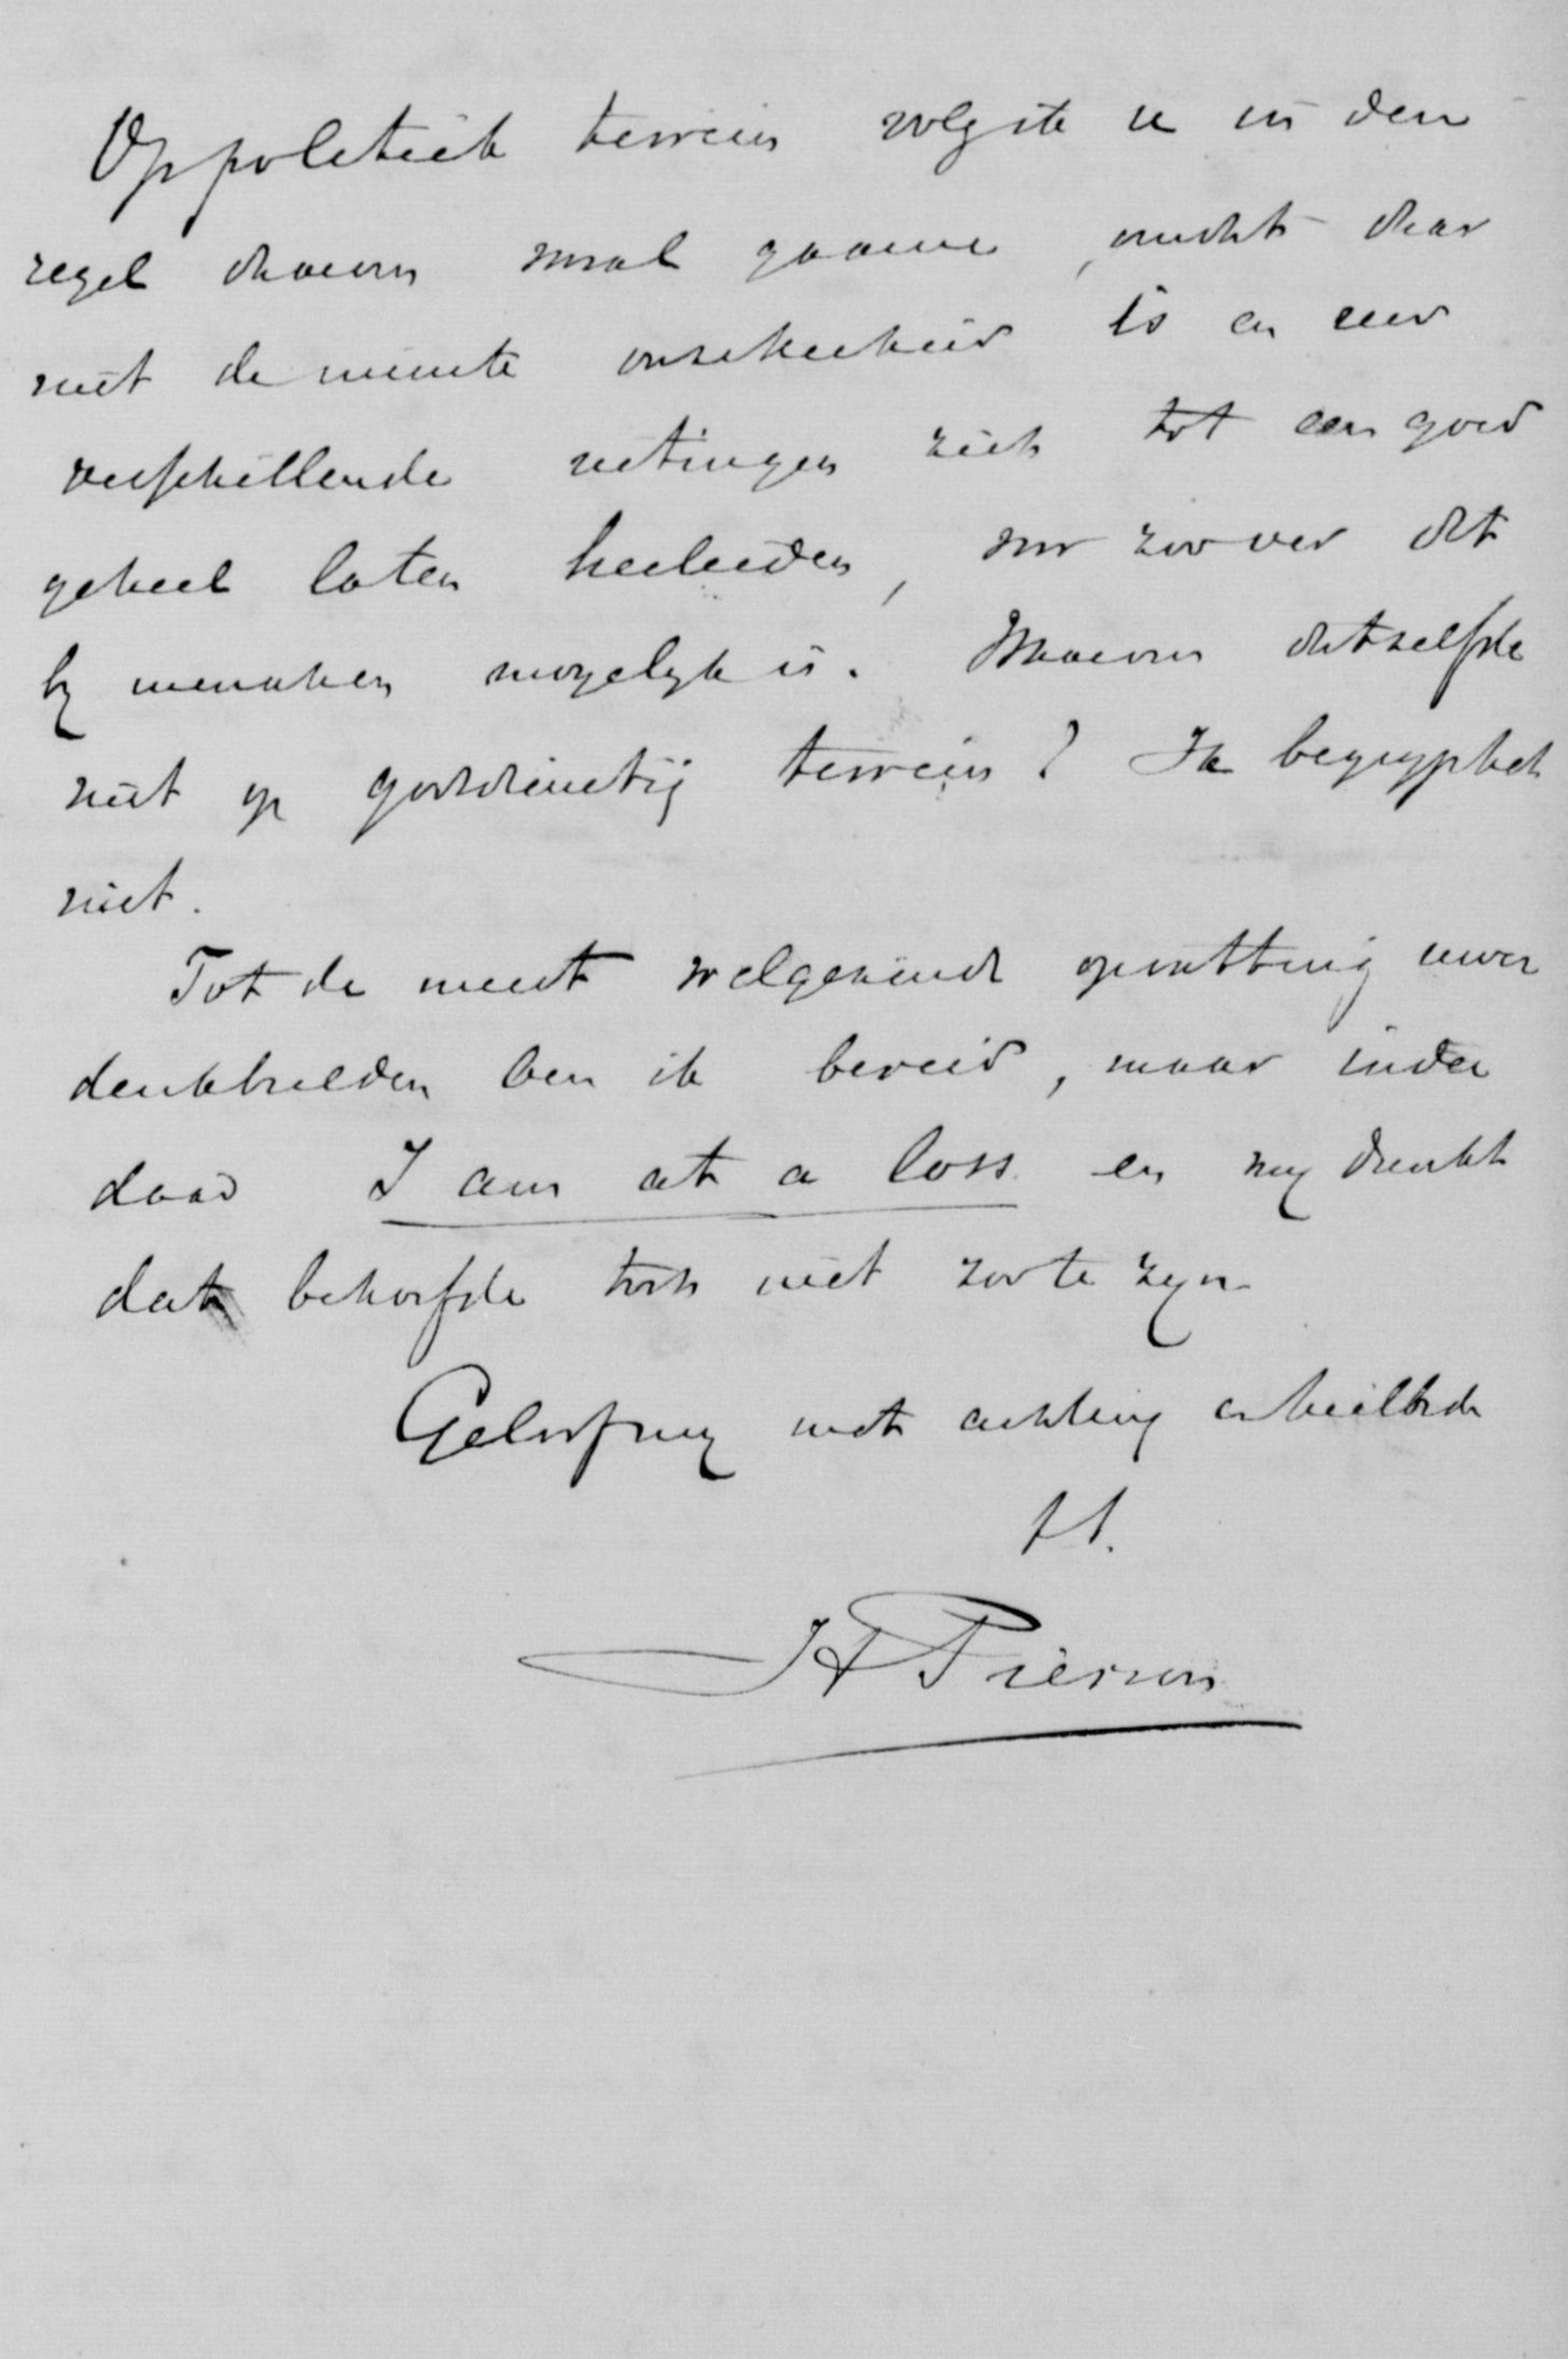 Op politiek terrein volg ik u in den
regel daarom vooral gaarne, omdat daar
niet de minste onzekerheid is en uw
verschillende uitingen zich tot een goed
geheel laten herleiden, voor zoover dit
by menschen mogelyk is. Waarom ditzelfde
niet op godsdienstig terrein? Ik begryp het
niet.
Tot de meest welgezinde opvatting uwer
denkbeelden ben ik bereid, maar inder
daad I am at a loss en my dunkt
dat behoefde toch niet zoo te zyn.
Geloof my met achting en heilbede
tt.
H Pierson